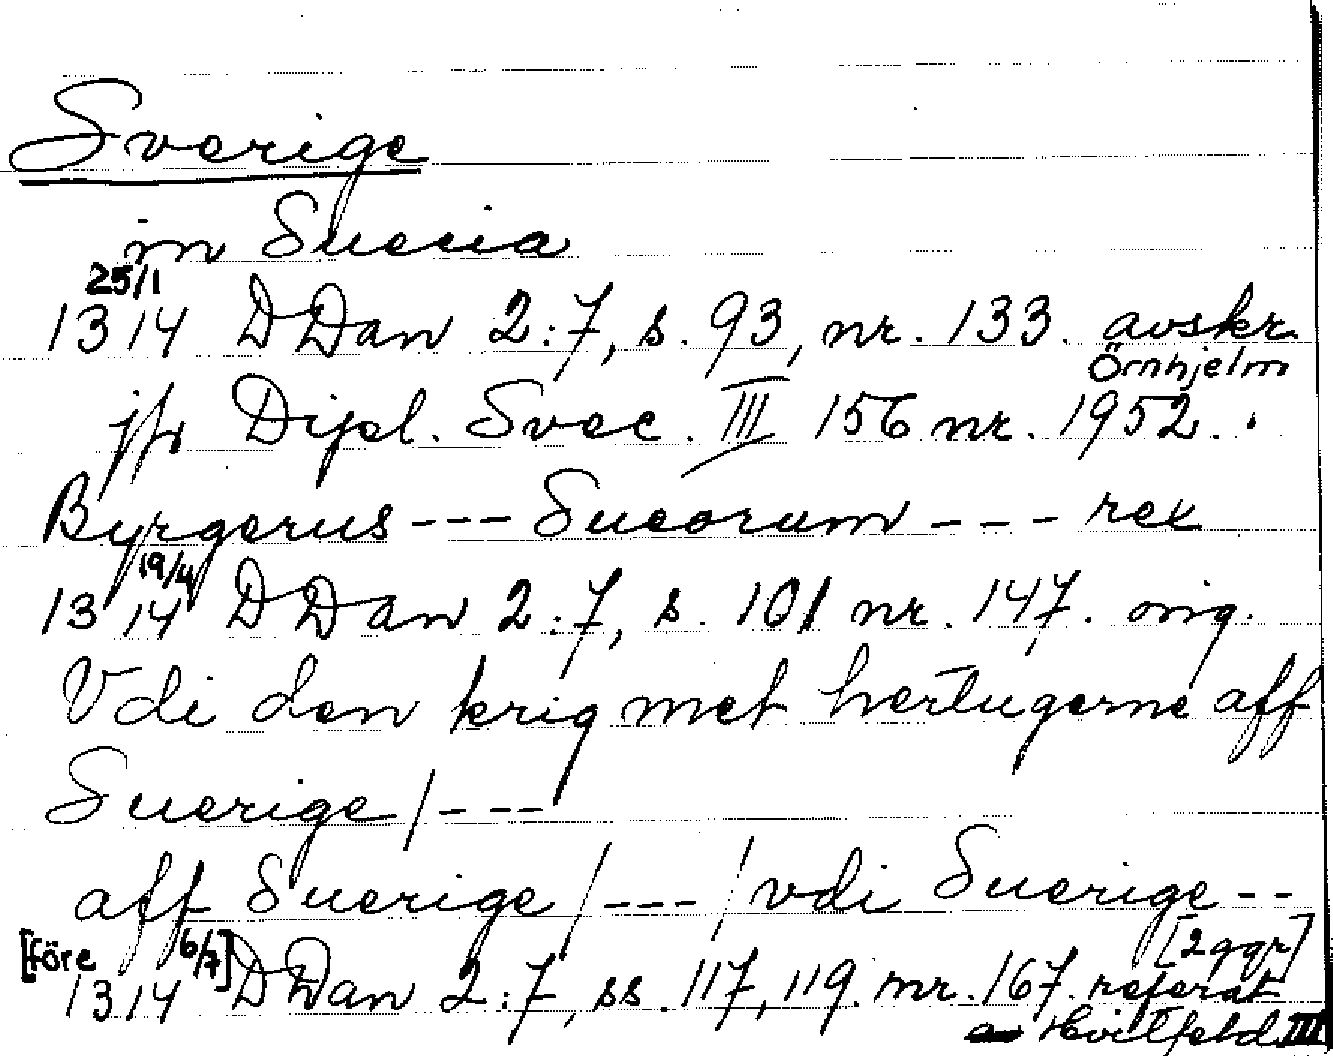 Sverige
in Suecia
25/1
1314 DDan 2:7, s. 93, nr. 133. avskr.
Örnhjelm
jfr Dipl. Svec. III 156 nr. 1952.
Byrgerus --- Sueorum --- rex
19/4
1314 DDan 2:7, s. 101 nr. 147. orig.
Vdi den krig met hertugerne aff
Suerige/---
aff Suerige/---/vdi Suerige--
[före 6/7] [2 ggr]
1314 DDan 2:7, ss. 117, 119. nr. 167. referat
Hvitfeld III